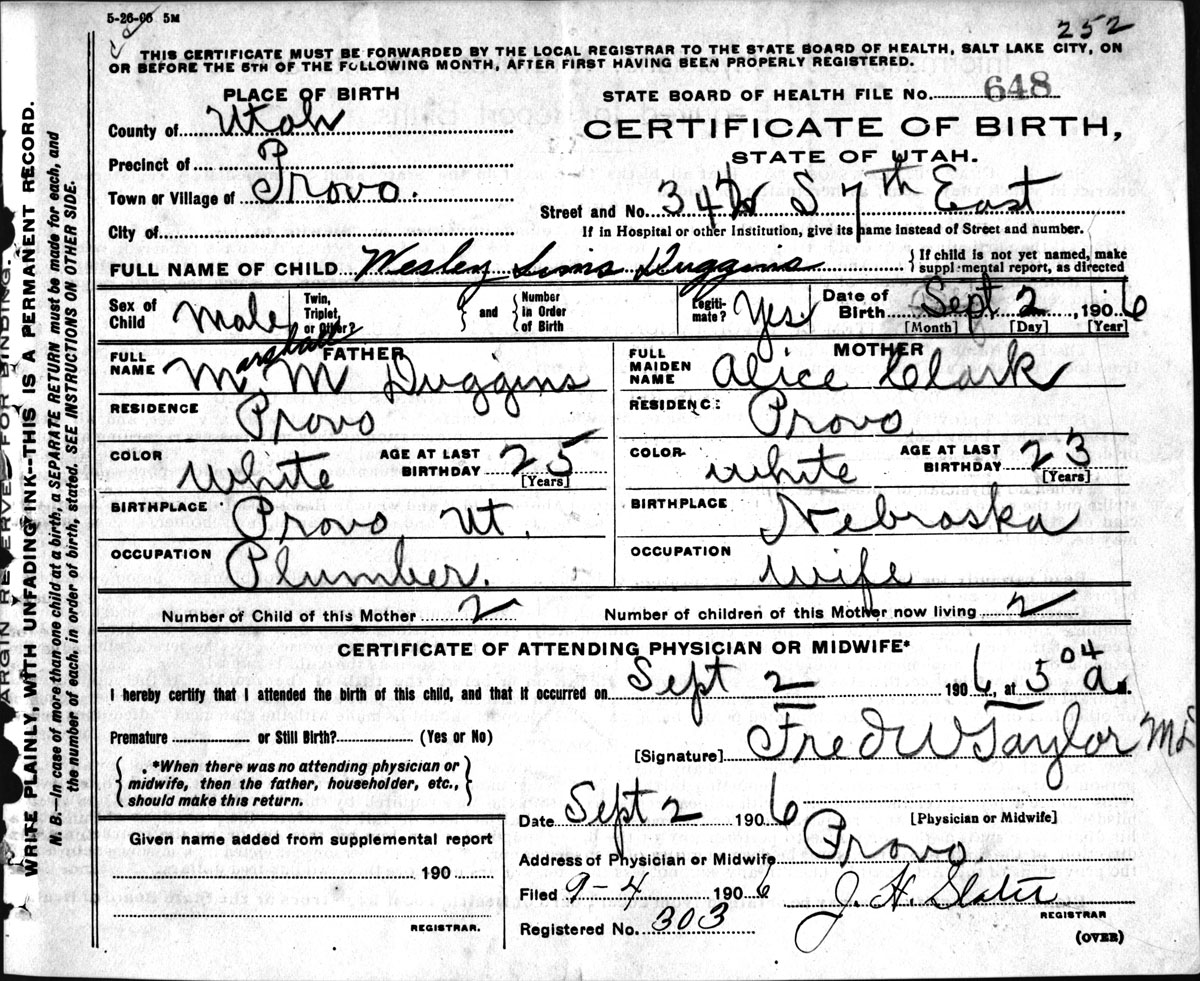 5-26-06 5M
252
THIS CERTIFICATE MUST BE FORWARDED BY THE LOCAL REGISTRAR TO THE STATE BOARD OF HEALTH, SALT LAKE CITY, ON
OR BEFORE THE 5TH OF THE FOLLOWING MONTH, AFTER FIRST HAVING BEEN PROPERLY REGISTERED.
PLACE OF BIRTH
STATE BOARD OF HEALTH FILE NO. 648
County of Utah
CERTIFICATE OF BIRTH,
Precinct of
STATE OF UTAH.
Town or Village of Provo.
Street and No. 342 S 7th East
City of
If in Hospital or other Institution, give its name instead of Street and number.
FULL NAME OF CHILD Wesley Sims Duggins
{If child is not yet named, make
supplemental report, as directed
Sex of Child Male
Twin, Triplet, or Other?
and
Number in Order of Birth
Legiti-mate? Yes.
Date of Birth Sept 2, 1906
[Month] [Day] [Year]
FATHER
FULL NAME Marshall M Duggins
MOTHER
FULL MAIDEN NAME Alice Clark
RESIDENCE Provo
RESIDENCE Provo
COLOR White AGE AT LAST BIRTHDAY 25 [Years]
COLOR White AGE AT LAST BIRTHDAY 23 [Years]
BIRTHPLACE Provo Ut.
BIRTHPLACE Nebraska
OCCUPATION Plumber.
OCCUPATION wife
Number of Child of this Mother 2
Number of children of this Mother now living 2
CERTIFICATE OF ATTENDING PHYSICIAN OR MIDWIFE*
I hereby certify that I attended the birth of this child, and that it occurred on Sept 2 1906, at 5 04 a.
Premature or Still Birth? (Yes or No)
[Signature] Fred W Taylor MD
*When there was no attending physician or
midwife, then the father, householder, etc.,
should make this return.
[Physician or Midwife]
Date Sept 2 1906
Address of Physician or Midwife Provo
Given name added from supplemental report
190
REGISTRAR.
Filed 9-4 1906 J. H. Slater
REGISTRAR
Registered No. 303
(OVER)
MARGIN RESERVED FOR BINDING.
WRITE PLAINLY, WITH UNFADING INK--THIS IS A PERMANENT RECORD.
N. B.--In case of more than one child at a birth, a SEPARATE RETURN must be made for each, and
the number of each, in order of birth, stated. SEE INSTRUCTIONS ON OTHER SIDE.